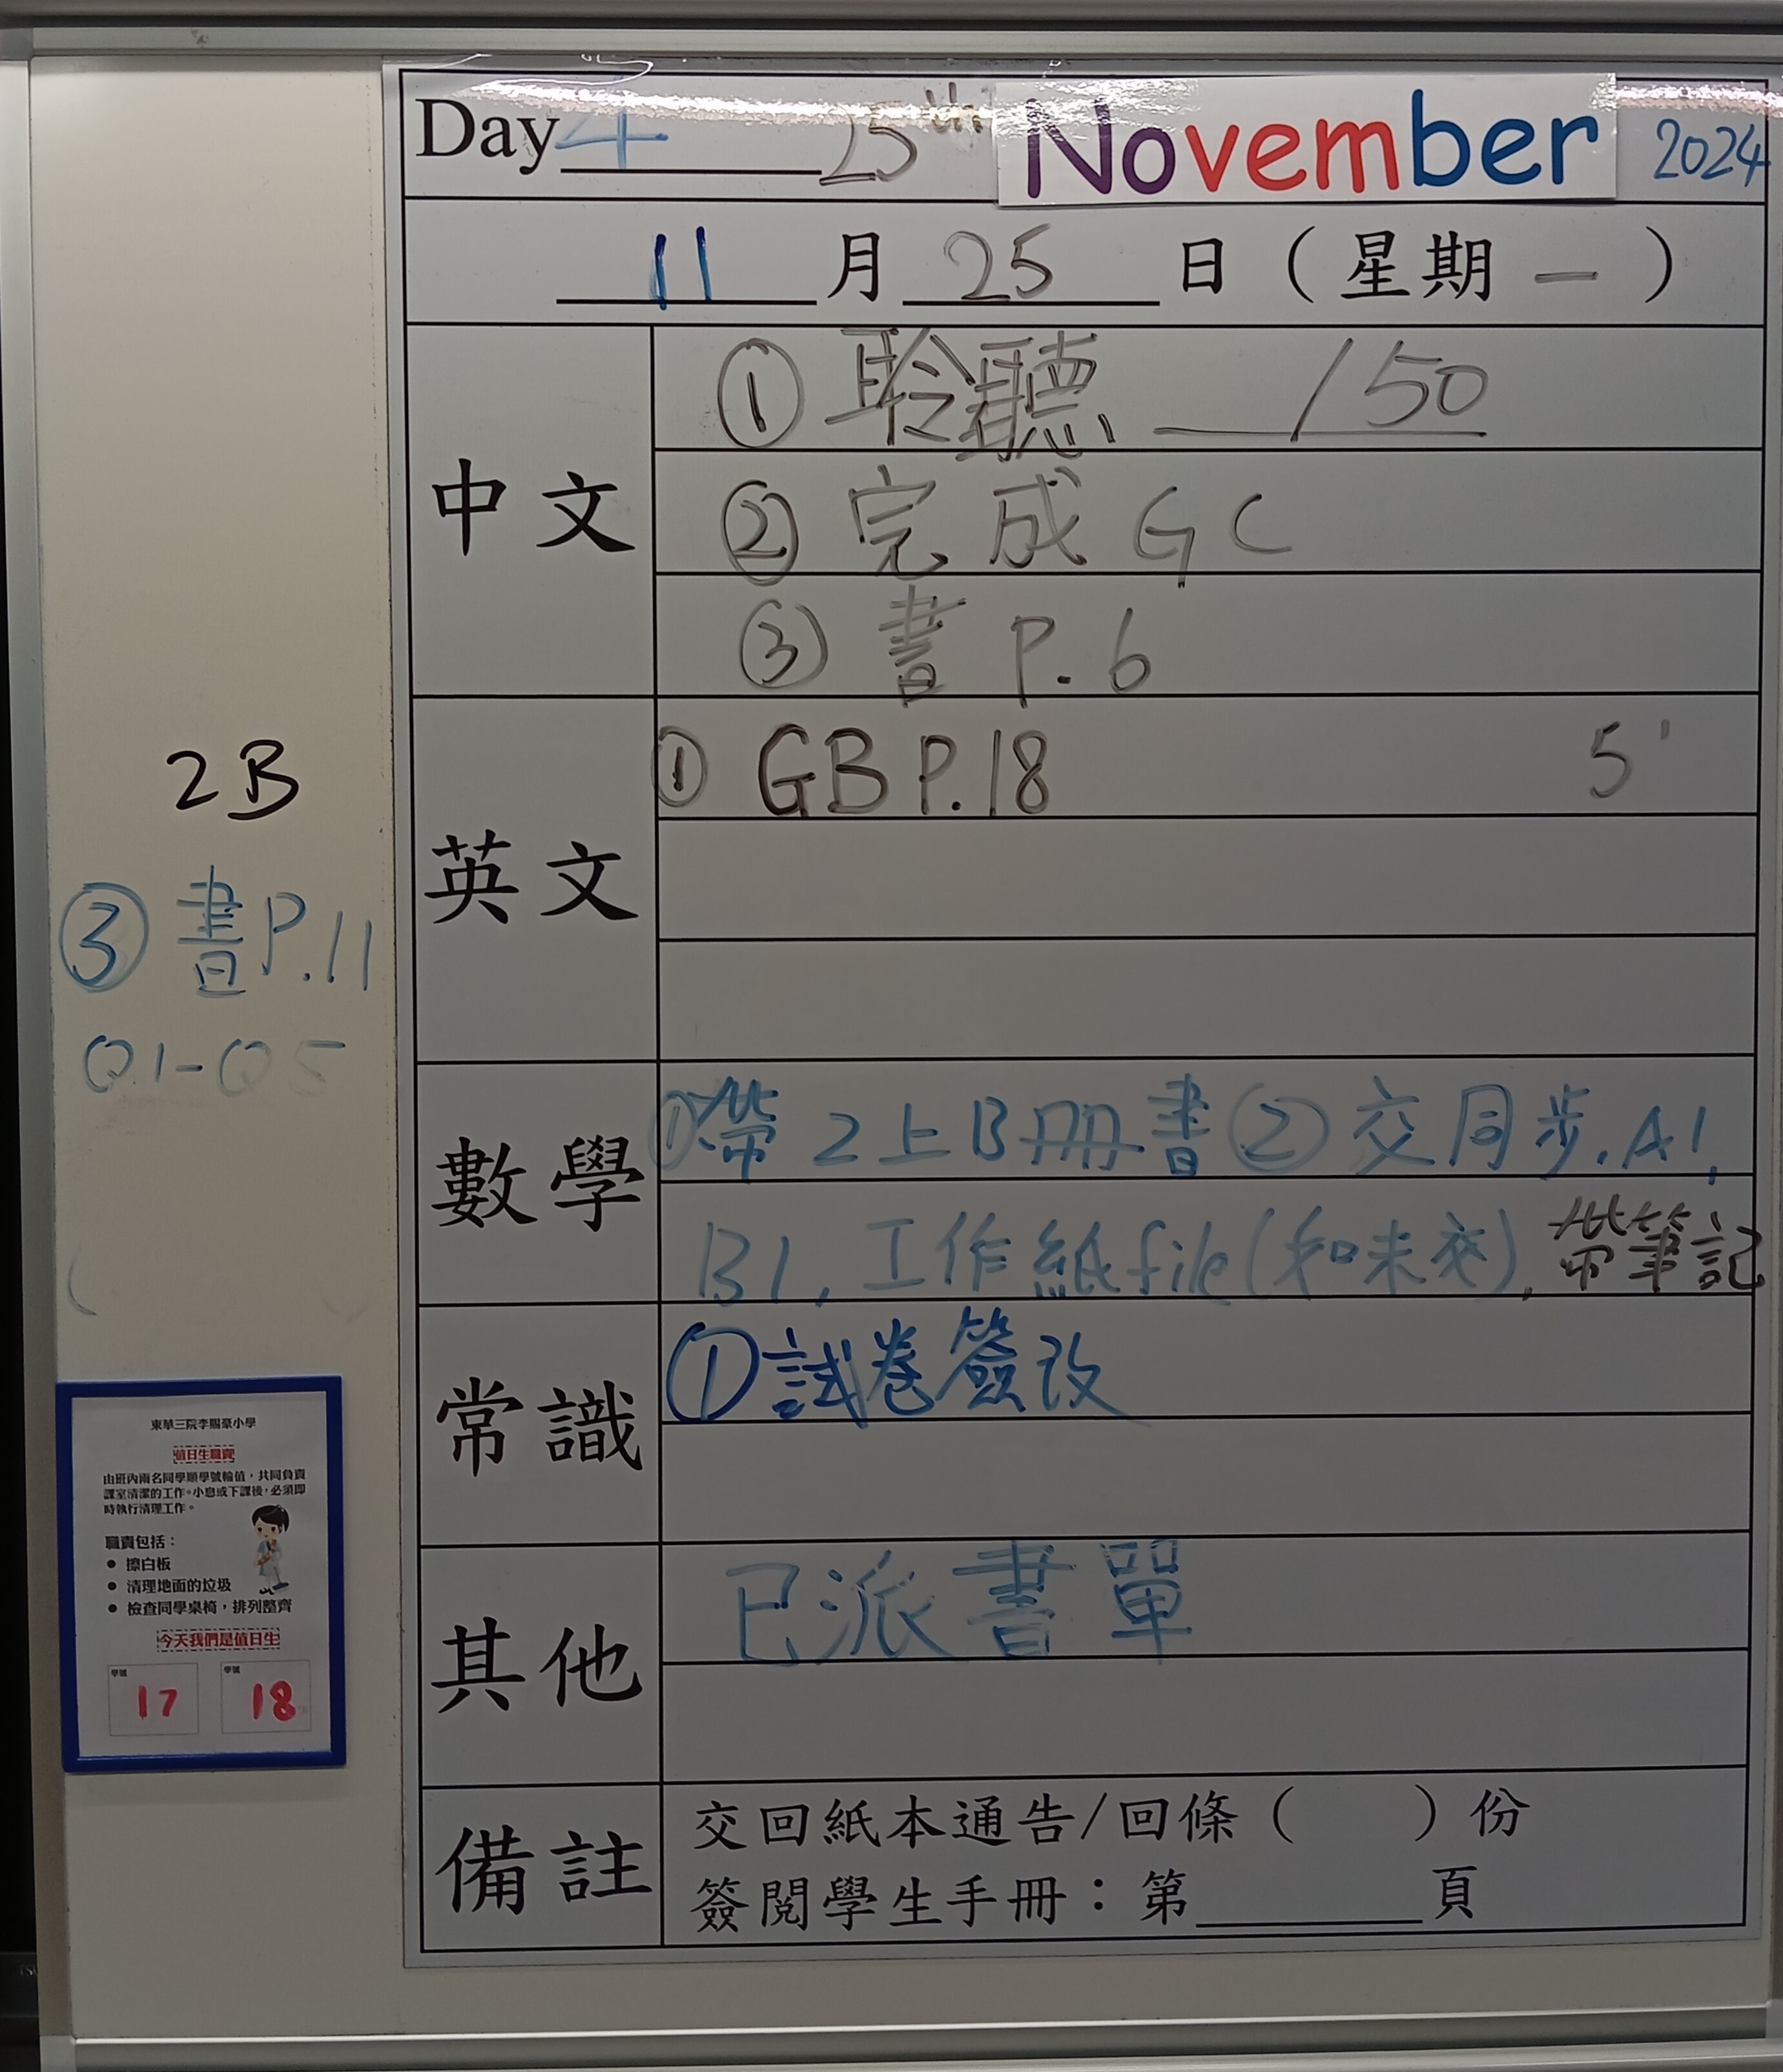 Day 4 25th November 2024
11 月 25 日 ( 星期 一 )
中文
① 聆聽 /50
② 完成 GC
③ 書 P.6
英文
① GB P.18 5'
數學
①帶 2上B冊書 ② 交同步. A1,
B1, 工作紙file(和未交), 帶筆記
常識
①試卷簽改
其他
已派書單
備註
交回紙本通告/回條 ( ) 份
簽閱學生手冊：第 頁
2B
③ 書P.11
Q1-Q5
東華三院李賜豪小學
值日生職責
由班內兩名同學順學號輪值，共同負責
課室清潔的工作。小息或下課後，必須即
時執行清理工作。
職責包括：
● 擦白板
● 清理地面的垃圾
● 檢查同學桌椅，排列整齊
今天我們是值日生
學號 學號
17 18